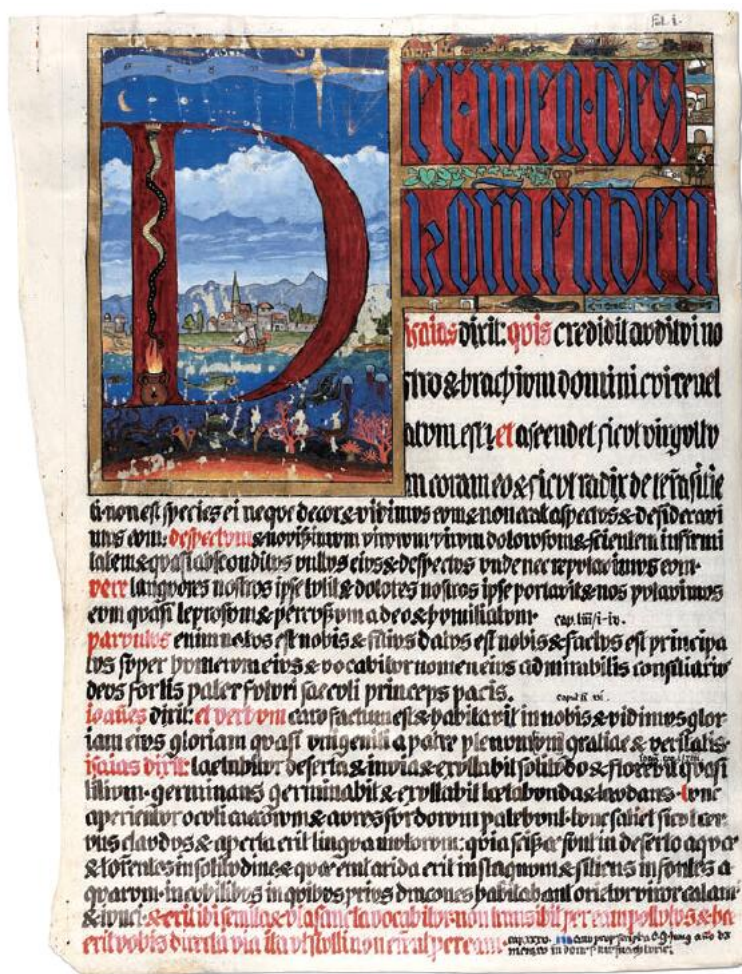 fol. i.
Der weg des
komenden
isaias dixit: quis credidit auditui no
stro & brachium domini cui revel
atum est? et ascendet sicut virgultu
m coram eo & sicut radix de terra sitie
ti. non est species ei neque decor & vidimus eum & non erat aspectus & desideravi
mus eum: despectum & novissimum virorum virum dolorosum & scientem infirmi
tatem & quasi absconditus vultus eius & despectus unde nec reputavimus eum.
vere languores nostros ipse tulit & dolores nostros ipse portavit & nos putavimus
eum quasi leprosum & percussum a deo & humiliatum. cap. liii/i-iv.
parvulus enim natus est nobis & filius datus est nobis & factus est principa
tus super humerum eius & vocabitur nomen eius admirabilis consiliarius
deus fortis pater futuri saeculi princeps pacis. caput ix vi.
ioannes dixit: et verbum caro factum est & habitavit in nobis & vidimus glor
iam eius gloriam quasi unigeniti a patre plenum gratiae & veritatis.
isaias dixit: laetabitur deserta & invia & exultabit solitudo & florebit quasi
lilium. germinans germinabit & exultabit laetabunda & laudans. tunc
aperientur oculi caecorum & aures sordorum patebunt. tunc saliet sicut cer
vus claudus & aperta erit lingua mutorum: quia scissae sunt in deserto aquae
& torrentes in solitudine & quae erat arida erit in stagnum & sitiens in fontes a
quarum. in cubilibus in quibus prius dracones habitabant orietur viror calami
& iunci. & erit ibi semita & via sancta vocabitur. non transibit per eam pollutus & hec
erit vobis directa via ita ut stulti non errent per eam. cap. xxxv.